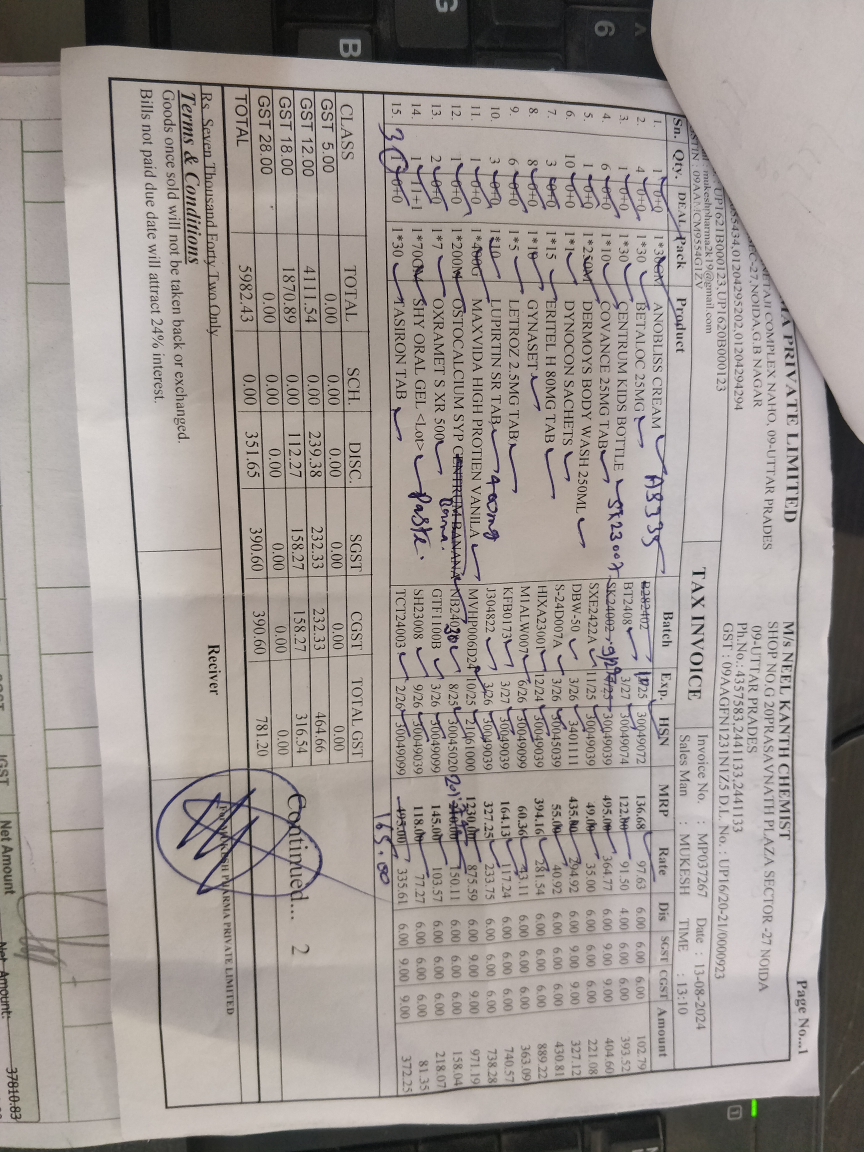 MA PRIVATE LIMITED
TAJI COMPLEX NAHO, 09-UTTAR PRADES
C-27,NOIDA,G.B NAGAR
5434,01204295202,01204294294
UP1621B000123,UP1620B000123
mukeshpharma2k19@gmail.com
Page No...1
M/s NEEL KANTH CHEMIST
SHOP NO,G 20PRASAVNATH PLAZA SECTOR -27 NOIDA
09-UTTAR PRADES
Ph.No.: 4357583,2441133,2441133
GST : 09AAGFN1231N1Z5 D.L. No. : UP16/20-21/0000923
TAX INVOICE
Invoice No. : MP037267 Date : 13-08-2024
Sales Man : MUKESH TIME : 13:10
Sn. Qty. DEAL Pack Product Batch Exp. HSN MRP Rate Dis SGST CGST Amount
1. 1 0+0 1*30GM ANOBLISS CREAM AB335 B282402 10/25 30049072 136.68 97.63 6.00 6.00 6.00 102.79
2. 4 0+0 1*30 BETALOC 25MG BT2408 3/27 30049074 122.00 91.50 4.00 6.00 6.00 393.52
3. 1 0+0 1*30 CENTRUM KIDS BOTTLE SK23007 SK24002 30049039 495.00 364.77 6.00 9.00 9.00 404.60
4. 6 0+0 1*10 COVANCE 25MG TAB SXE2422A 11/25 30049039 49.00 35.00 6.00 6.00 6.00 221.08
5. 1 0+0 1*250M DERMOYS BODY WASH 250ML DBW-50 3/26 3401111 435.00 294.92 6.00 9.00 9.00 327.12
6. 10 0+0 1*1 DYNOCON SACHETS S-24D007A 3/26 30045039 55.00 40.92 6.00 6.00 6.00 430.81
7. 3 0+0 1*15 ERITEL H 80MG TAB HIXA23001 12/24 30049039 394.16 281.54 6.00 6.00 6.00 889.22
8. 8 0+0 1*10 GYNASET M1ALW007 6/26 30049099 60.36 43.11 6.00 6.00 6.00 363.09
9. 6 0+0 1*5 LETROZ 2.5MG TAB KFB0173 3/27 30049039 164.13 117.24 6.00 6.00 6.00 740.57
10. 3 0+0 1*10 LUPIRTIN SR TAB 400mg J304822 3/26 30049039 327.25 233.75 6.00 6.00 6.00 738.28
11. 1 0+0 1*400G MAXVIDA HIGH PROTIEN VANILA MVHP006D24 10/25 21061000 1230.00 875.59 6.00 9.00 9.00 971.19
12. 1 0+0 1*200M OSTOCALCIUM SYP CENTRUM BANANA NB24020 8/25 30045020 150.11 6.00 6.00 6.00 158.04
13. 2 0+0 1*7 OXRAMET S XR 500 GTF1100B 3/26 30049099 145.00 103.57 6.00 6.00 6.00 218.07
14. 1 11+1 1*70GM SHY ORAL GEL <Lot> Paste. SH23008 9/26 30049099 118.00 77.27 6.00 6.00 6.00 81.35
15. 0+0 1*30 TASIRON TAB TCT24003 2/26 30049099 495.00 335.61 6.00 9.00 9.00 372.25
165.00
CLASS TOTAL SCH. DISC. SGST CGST TOTAL GST
GST 5.00 0.00 0.00 0.00 0.00 0.00 0.00
GST 12.00 4111.54 0.00 239.38 232.33 232.33 464.66
GST 18.00 1870.89 0.00 112.27 158.27 158.27 316.54
GST 28.00 0.00 0.00 0.00 0.00 0.00 0.00
TOTAL 5982.43 0.00 351.65 390.60 390.60 781.20
Continued... 2
Rs. Seven Thousand Forty Two Only
Terms & Conditions
Goods once sold will not be taken back or exchanged.
Bills not paid due date will attract 24% interest.
Reciver
PHARMA PRIVATE LIMITED
IGST
Net Amount
Net Amount:
37810.83